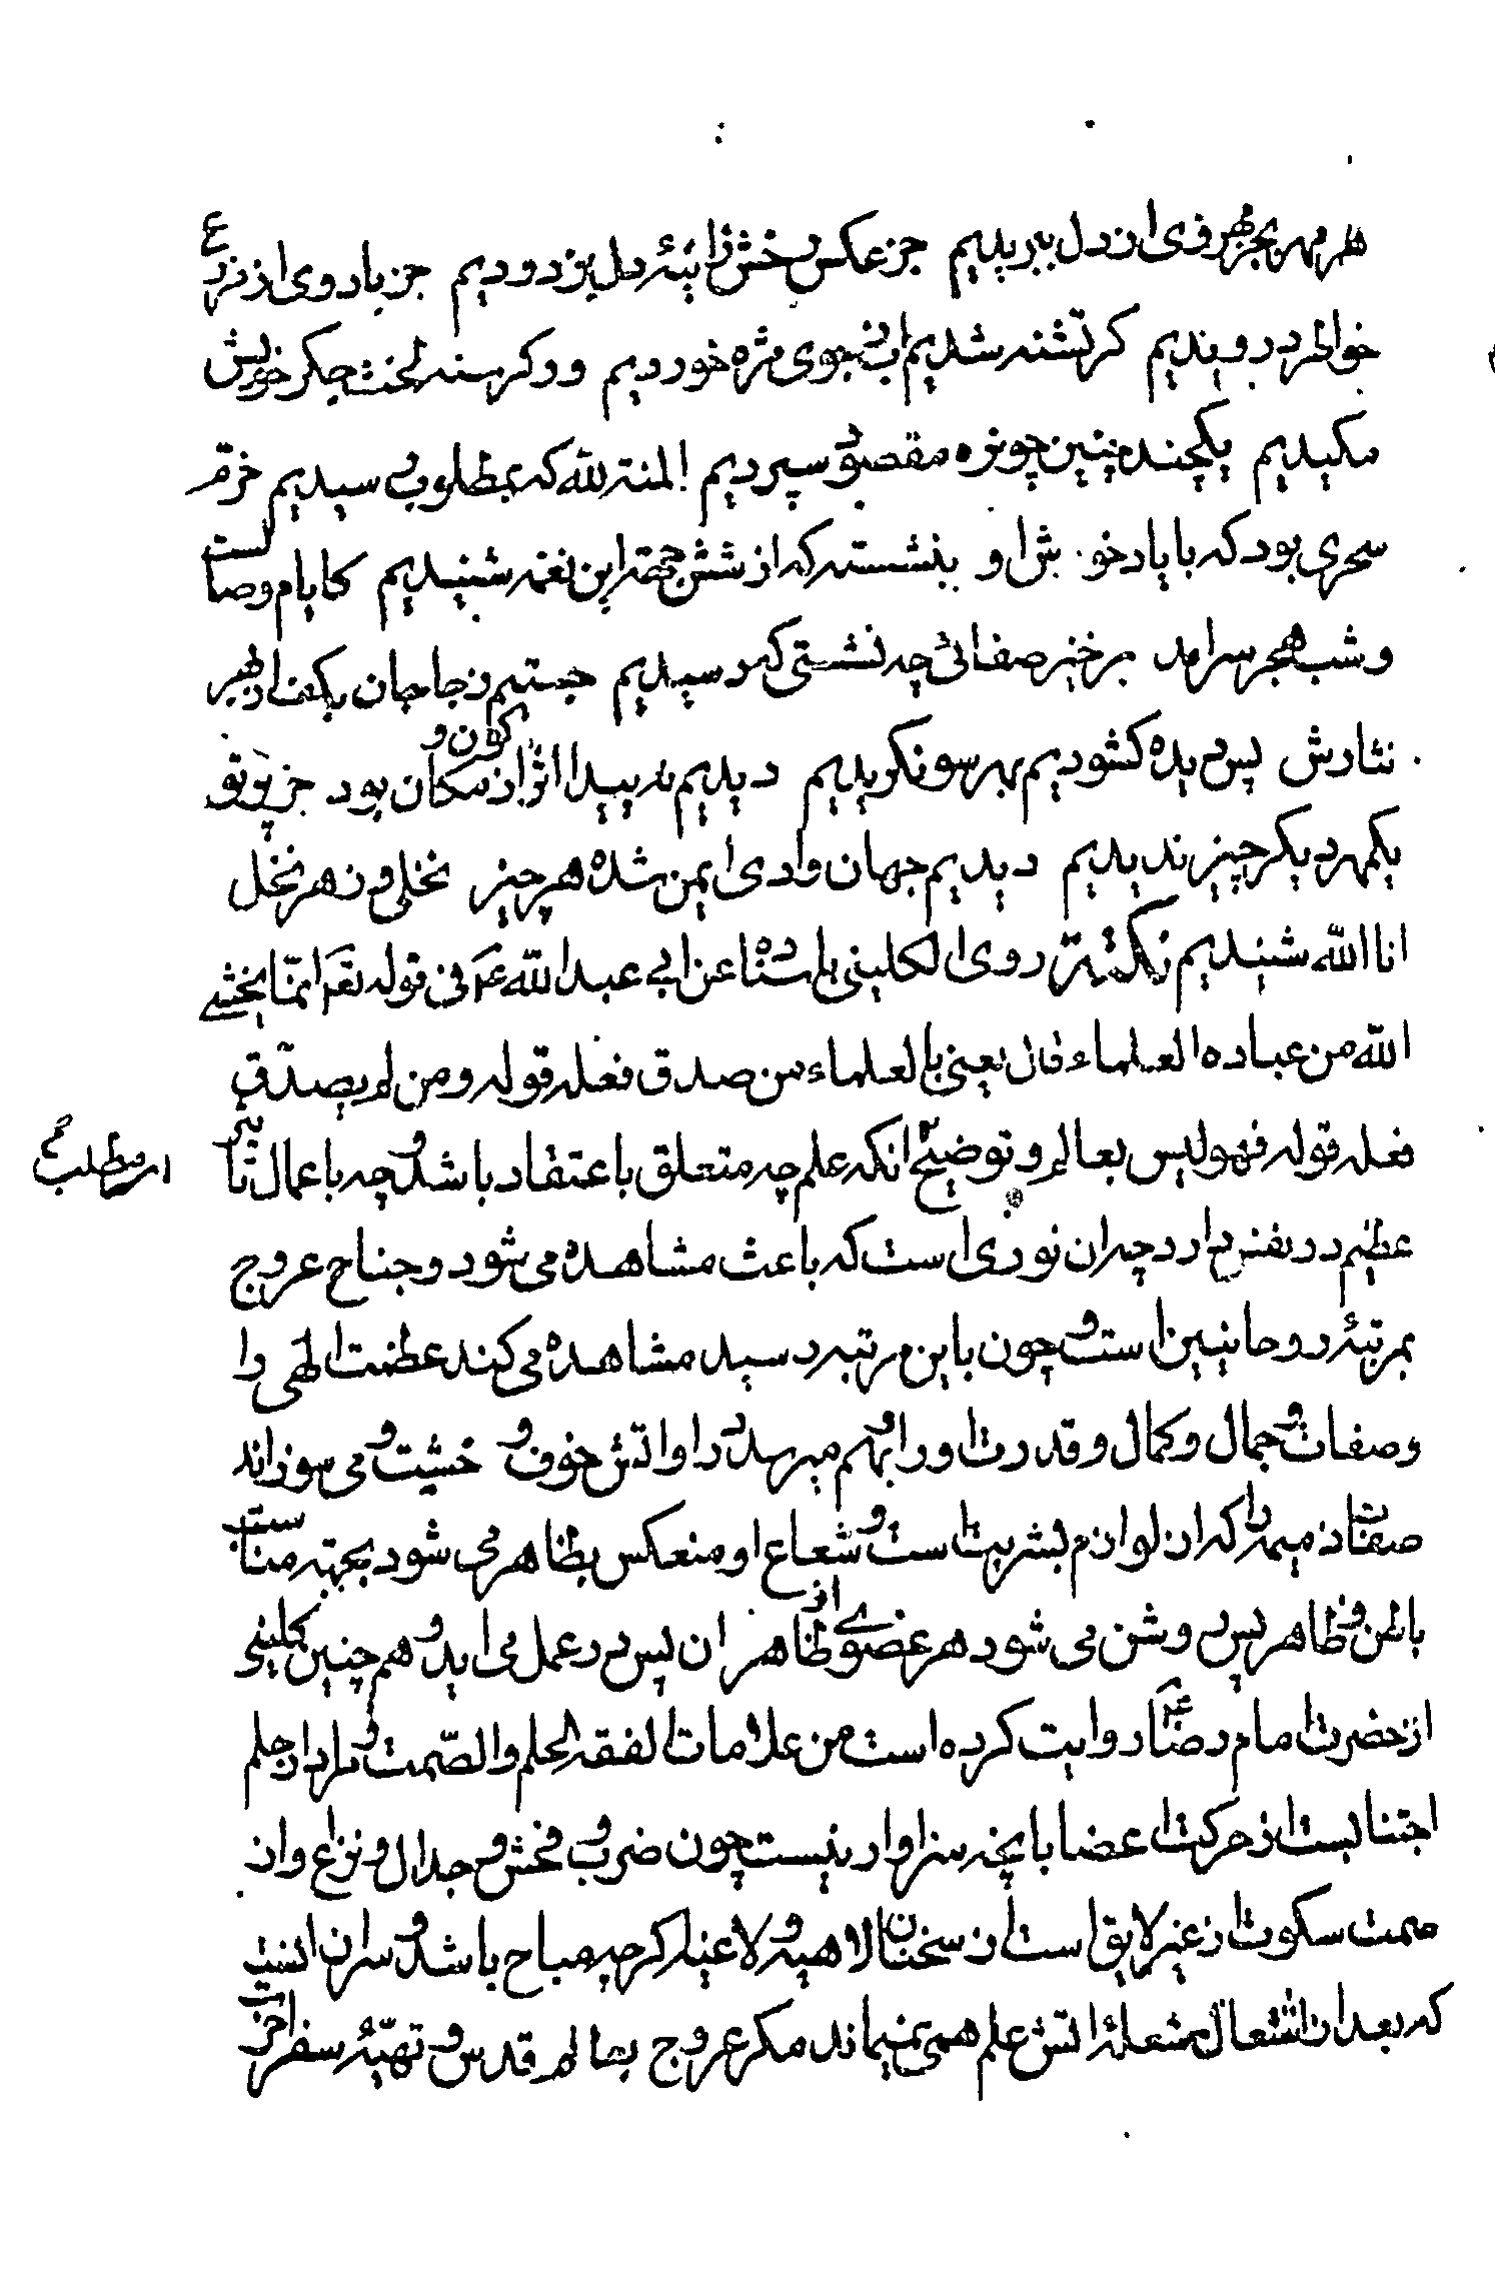 هر مهر بجز مهر وی از دل ببریدیم جز عکس رخش زاینهٔ دل بزدودیم جز یاد وی از مزرع
خواطر درویدیم کر تشنه شدیم اب ز جوی مژه خوردیم ور کرسنه لخت جکر خویش
مکیدیم یکچند چنین چون ره مقصود سپردیم المنة لله که بمطلوب رسیدیم خرم
سحری بود که با یاد خوش او بنشسته که از شش جهة این نغمه شنیدیم کایام وصالست
و شب هجر سرامد برخیز صفائی چه نشستی که رسیدیم جستیم ز جا جان بکف از بهر
نثارش پس دیده کشودیم بهر سو نکریدیم دیدیم نه پیدا اثر از کون و مکان بود جز پرتو
یکمهر دیکر چیز ندیدیم دیدیم جهان وادی ایمن شده هر چیز نخلی و ز هر نخل
انا الله شنیدیم نکتة روی الکلینی باسناده عن ابی عبد الله ع فی قوله تع انّما یخشی
الله من عباده العلماء قال یعنی بالعلماء من صدق فعله قوله و من لم یصدّق
فعله قوله فهو لیس بعالم و توضیح انکه علم چه متعلق باعتقاد باشد و چه باعمال تاثیر
عظیم در نفس دارد چه ان نوری است که باعث مشاهده می شود و جناح عروج
بمرتبهٔ روحانیین است و چون باین مرتبه رسید مشاهده می کند عظمت الهی را
و صفات و جمال و کمال و قدرت او را و بهم میرسد در او اتش خوف و خشیت و می سوزاند
صفات ذمیمه را که از لوازم بشریت است و شعاع او منعکس بظاهر می شود بجهة مناسبت
باطن و ظاهر پس روشن می شود هر عضوی از ظاهر ان پس در عمل می اید و هم چنین کلینی
از حضرت امام رضا ع روایت کرده است من علامات الفقه الحلم و الصّمت و مراد از حلم
اجتنابست از حرکت اعضا بانچه سزاوار نیست چون ضرب و فحش و جدال و نزاع و از
صمت سکوت از غیر لایق است از سخنان لاهیه و لاغیه اکرچه مباح باشد و سر ان انست
که بعد از اشتعال مشعلهٔ اتش علم همی نمیماند مکر عروج بعالم قدس و تهیّهٔ سفر اخرت